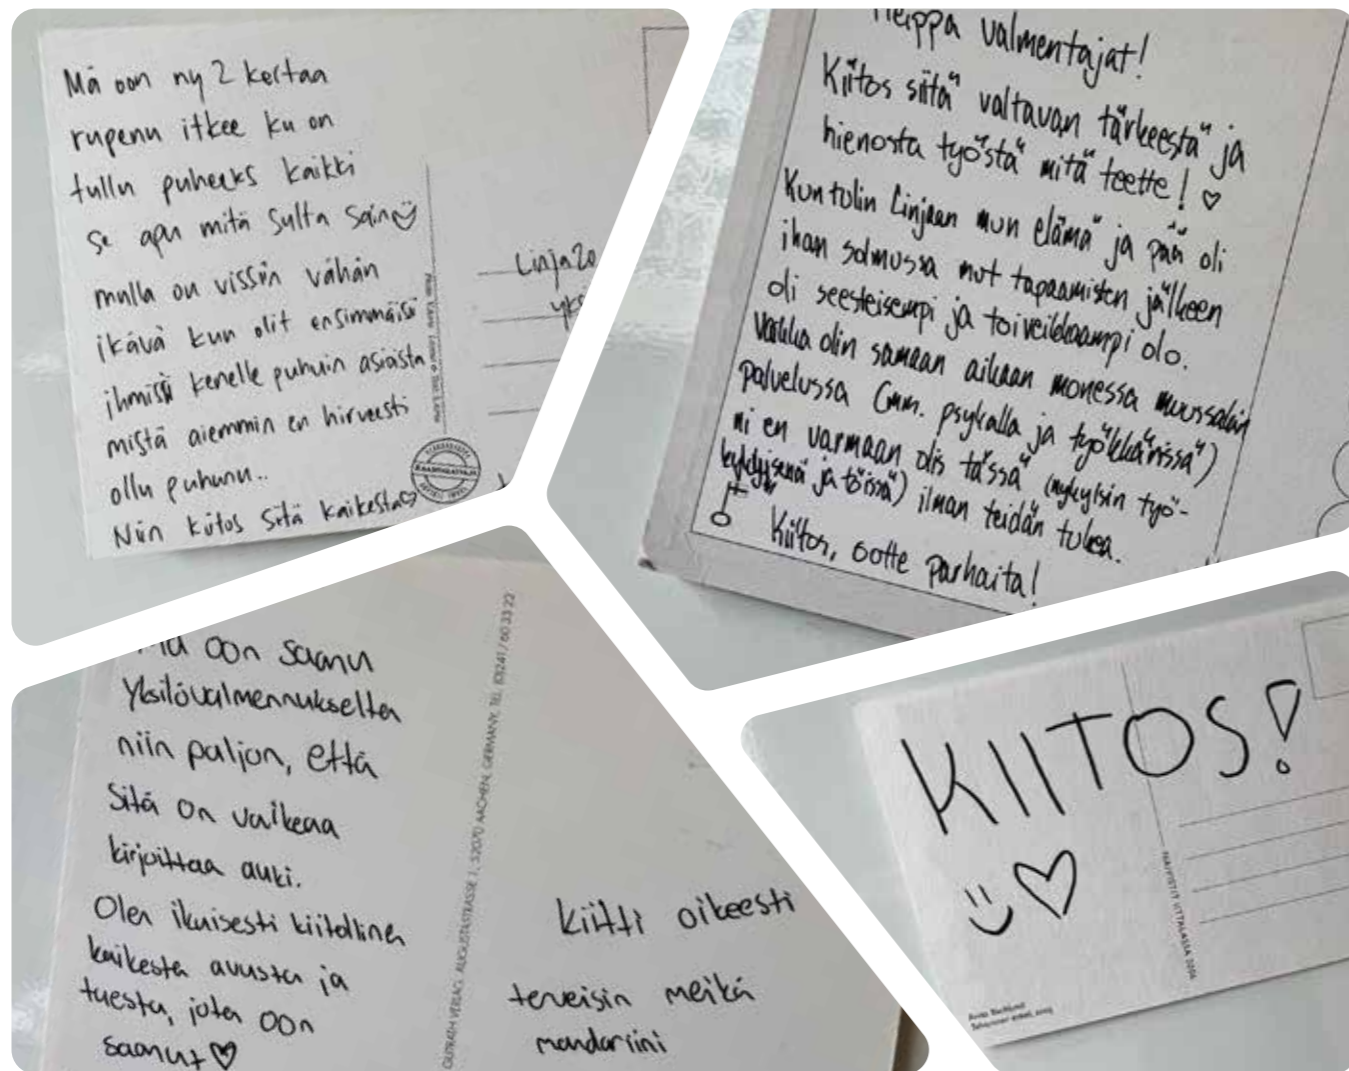 Mä oon ny 2 kertaa
rupenu itkee ku on
tullu puheeks kaikki
se apu mitä sulta sain
mulla on vissiin vähän
ikävä kun olit ensimmäisii
ihmisii kenelle puhuin asioista
mistä aiemmin en hirveesti
ollu puhunu..
Niin kiitos siitä kaikesta♡
Linja20
yksi
Heippa valmentajat!
Kiitos siitä valtavan tärkeestä ja
hienosta työstä mitä teette! ♡
Kun tulin Linjaan mun elämä ja pää oli
ihan solmussa mut tapaamisten jälkeen
oli seesteisempi ja toiveikkaampi olo.
Vaikka olin samaan aikaan monessa muussakin
palvelussa (mm. psykalla ja työkkärissä)
ni en varmaan olis tässä (nykyisin työ-
kykyisenä ja töissä) ilman teidän tukea.
Kiitos, ootte parhaita!
Mä oon saanu
Yksilövalmennukselta
niin paljon, että
sitä on vaikeaa
kirjoittaa auki.
Olen ikuisesti kiitollinen
kaikesta avusta ja
tuesta, jota oon
saanut ♡
VERLAG, AUGUSTASTRASSE 1, 52070 AACHEN, GERMANY, TEL. (0)241 / 60 33 22
kiitti oikeesti
terveisin meikä
mandariini
KIITOS!
♡